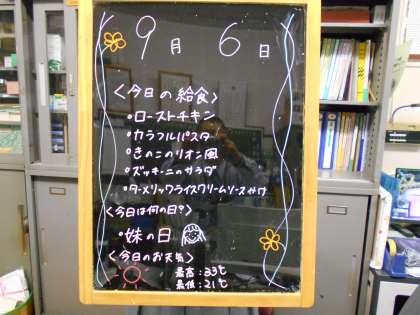 9月6日
〈今日の給食〉
・ローストチキン
・カラフルパスタ
・きのこのリヨン風
・ズッキーニのサラダ
・ターメリックライスクリームソースかけ
〈今日は何の日?〉
・妹の日
〈今日のお天気〉
最高:33℃
最低:21℃